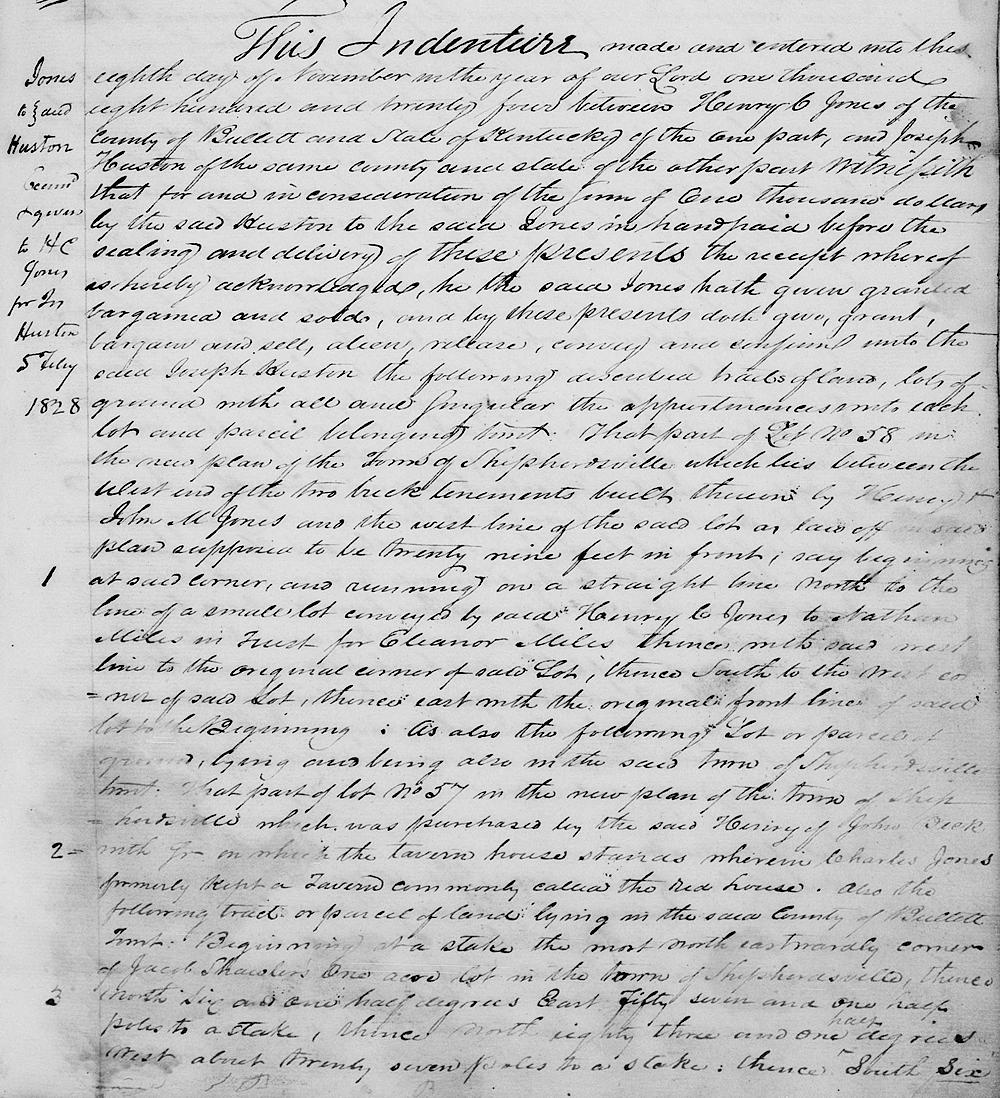 This Indenture made and entered into this
Jones
to } and
Huston
Exam'd
& given
to H C
Jones
for Jos
Huston
5 Feby
1828
eighth day of November in the year of our Lord one thousand
eight hundred and twenty four between Henry C Jones of the
County of Bullitt and State of Kentucky of the one part, and Joseph
Huston of the same county and state of the other part Witnesseth
that for and in consideration of the sum of One thousand dollars
by the said Huston to the said Jones in hand paid before the
sealing and delivery of these presents the receipt whereof
is hereby acknowledged, he the said Jones hath given granted
bargained and sold, and by these presents doth give, grant,
bargain and sell, alien, release, convey and confirm unto the
said Joseph Huston the following described tracts of land, lots of
ground with all and singular the appurtenances unto each
lot and parcel belonging towit: That part of Lot No 58 in
the new plan of the Town of Shepherdsville which lies between the
West end of the two brick tenements built thereon by Henry &
John M Jones and the west line of the said lot as laid off in said
plan supposed to be twenty nine feet in front; say beginning
1
at said corner, and running on a straight line North to the
line of a small lot conveyed by said Henry C Jones to Nathan
Miles in Trust for Eleanor Miles thence with said west
line to the original corner of said Lot, thence South to the West cor
=ner of said Lot, thence east with the original front line of said
lot to the Beginning : As also the following Lot or parcel of
ground, lying and being also in the said town of Shepherdsville
towit: That part of lot No 57 in the new plan of the town of Shep
=herdsville which was purchased by the said Henry of John Beck
2=
with on which the tavern house stands wherein Charles Jones
formerly kept a Tavern commonly called the red house. Also the
following tract or parcel of land lying in the said County of Bullitt
Towit: Beginning at a stake the most north eastwardly corner
of Jacob One acre lot in the town of Shepherdsville, thence
3
north Six and one half degrees East Fifty seven and one half
poles to a stake, thence North eighty three and one half degrees
West about twenty seven poles to a stake: thence South Six